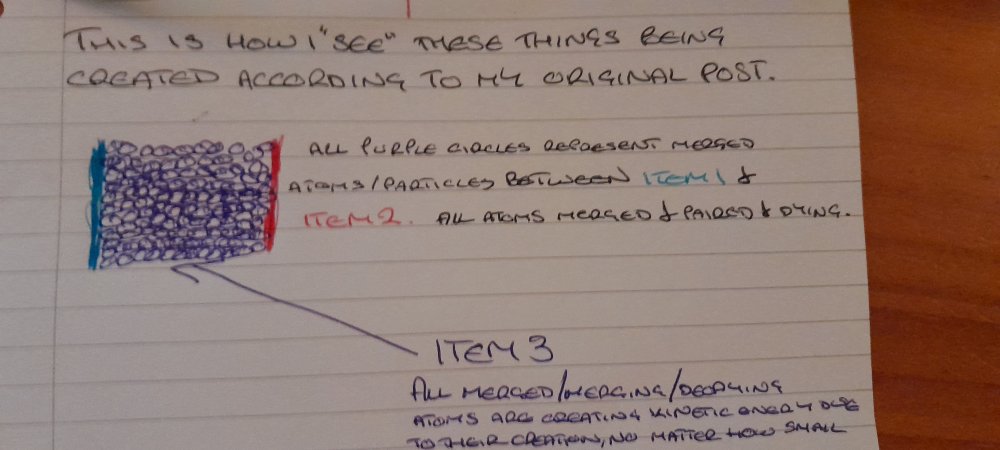 THIS IS HOW I "SEE" THESE THINGS BEING
CREATED ACCORDING TO MY ORIGINAL POST.
ALL PURPLE CIRCLES REPRESENT MERGED
ATOMS/PARTICLES BETWEEN ITEM 1 &
ITEM 2. ALL ATOMS MERGED & PAIRED & DYING.
ITEM 3
ALL MERGED/MERGING/DECAYING
ATOMS ARE CREATING KINETIC ENERGY DUE
TO THEIR CREATION, NO MATTER HOW SMALL